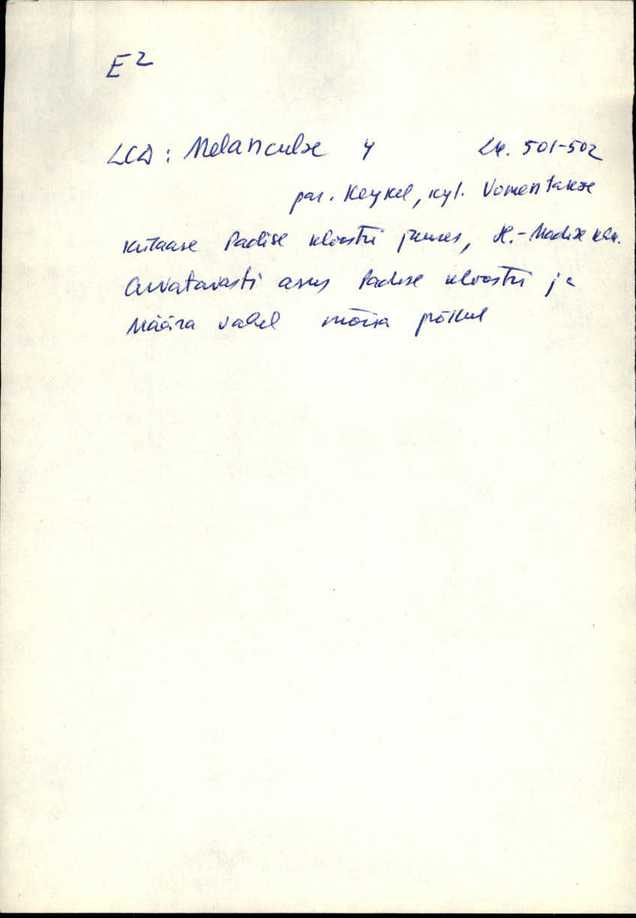 E2
LCD: Melanculæ 4 Lk. 501-502
par. Keykel, kyl. Vomentakæ
Padise kloostri juures, H.-Madise khk.
Arvatavasti asus Padise kloostri ja
Määra vahel mõisa põllul